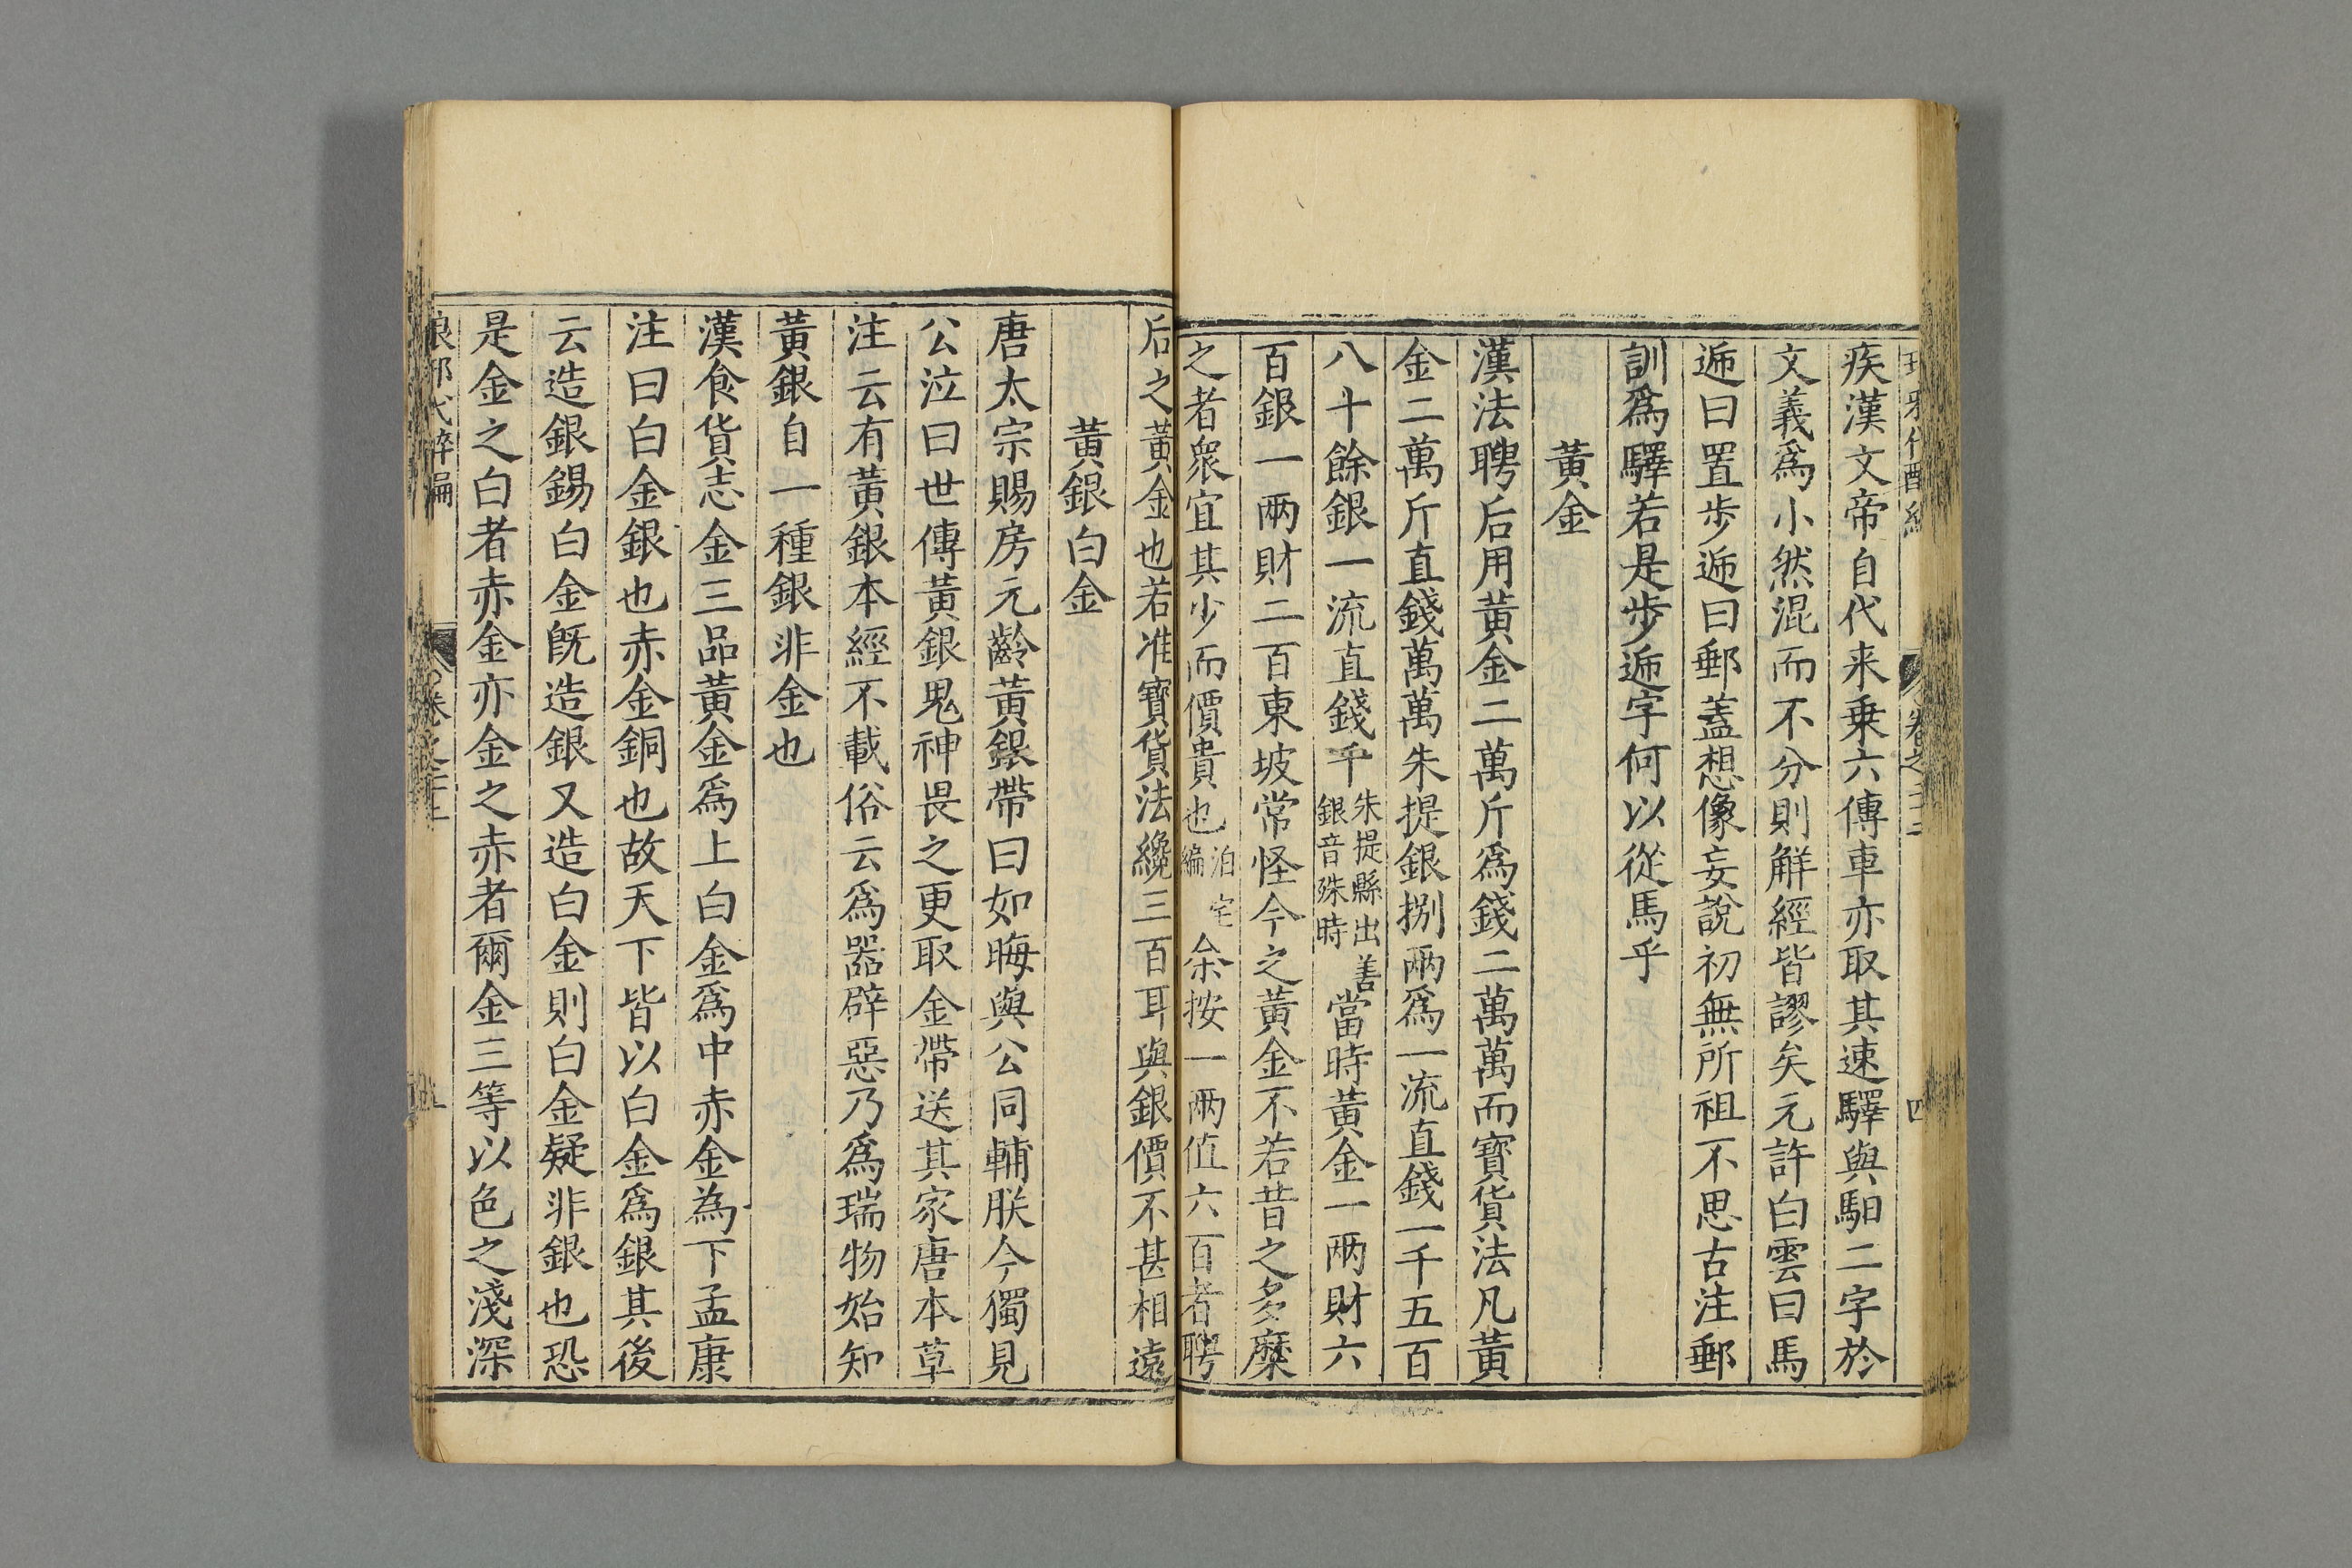 疾漢文帝自代来乗六傳車亦取其速驛與馹二字於
文義爲小然混而不分則解經皆謬矣元許白雲曰馬
逓曰置步逓曰郵蓋想像妄說初無所祖不思古注郵
訓爲驛若是步逓字何以從馬乎
黃金
漢法聘后用黃金二萬斤爲錢二萬萬而寳貨法凡黃
金二萬斤直錢萬萬朱提銀捌兩爲一流直錢一千五百
八十餘銀一流直錢千朱提縣出善銀音殊時當時黃金一兩財六
百銀一兩財二百東坡常怪今之黃金不若昔之多糜
之者衆宜其少而價貴也泊宅編余按一兩值六百者聘
后之黃金也若准寳貨法纔三百耳與銀價不甚相遠
黃銀白金
唐太宗賜房元齡黃銀帶曰如晦與公同輔朕今獨見
公泣曰世傳黃銀鬼神畏之更取金帶送其家唐本草
注云有黃銀本經不載俗云爲器辟惡乃爲瑞物始知
黃銀自一種銀非金也
漢食貨志金三品黃金爲上白金爲中赤金為下孟康
注曰白金銀也赤金銅也故天下皆以白金爲銀其後
云造銀錫白金旣造銀又造白金則白金疑非銀也恐
是金之白者赤金亦金之赤者爾金三等以色之淺深